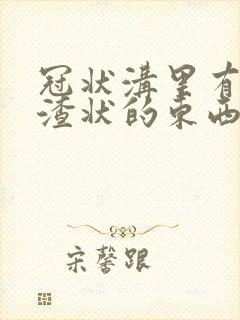 冠状溝里有
渣状的東西
宋馨跟